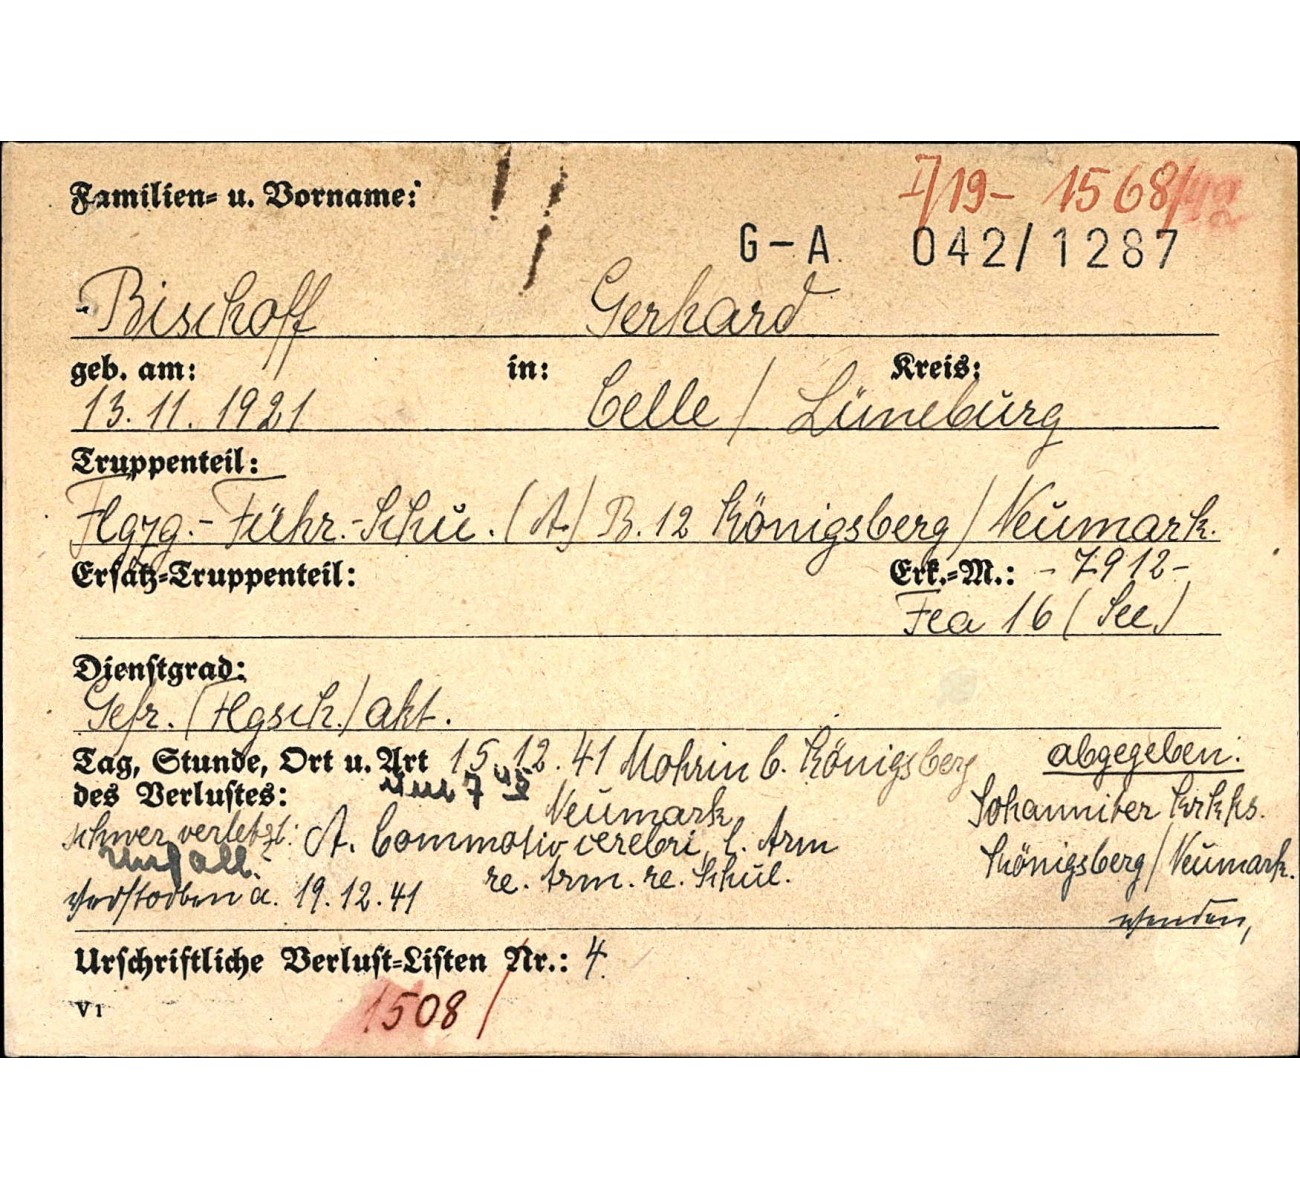 I/19- 1568/
Familien- u. Vorname:
G-A 042/1287
Bischoff Gerhard
geb. am: in: Kreis:
13.11.1921 Celle / Lüneburg
Truppenteil:
Flgzg.-Führ.-Schu. (A) B. 12 Königsberg / Neumark.
Ersatz-Truppenteil: Erk.-M.: -7912-
Fea 16 (See)
Dienstgrad:
Gefr. (Flgsch.) akt.
Tag, Stunde, Ort u. Art 15.12.41 Mohrin b. Königsberg abgegeben:
des Verlustes: Neumark Johanniter Krkhs.
schwer verletzt: A. Commotio cerebri, l. Arm Königsberg/Neumark.
Unfall. re. Arm. re. Schul.
verstorben a. 19.12.41 wenden,
Urschriftliche Verlust-Listen Nr.: 4.
V1 1508/